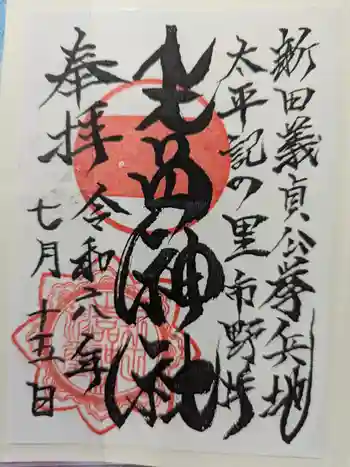 新田義貞公挙兵地
太平記の里市野井
生品神社
奉拝
令和六年
七月十五日